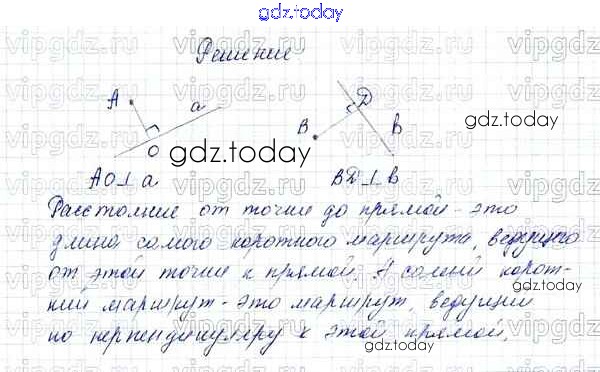 gdz.today
Решение
A
a
O
gdz.today
AO⊥a
D
B
в
gdz.today
BD⊥в
Расстояние от точки до прямой - это
длина самого короткого маршрута, ведущего
от этой точки к прямой. А самый корот-
кий маршрут - это маршрут, ведущий
по перпендикуляру к этой прямой.
gdz.today
gdz.today
vipgdz.ru